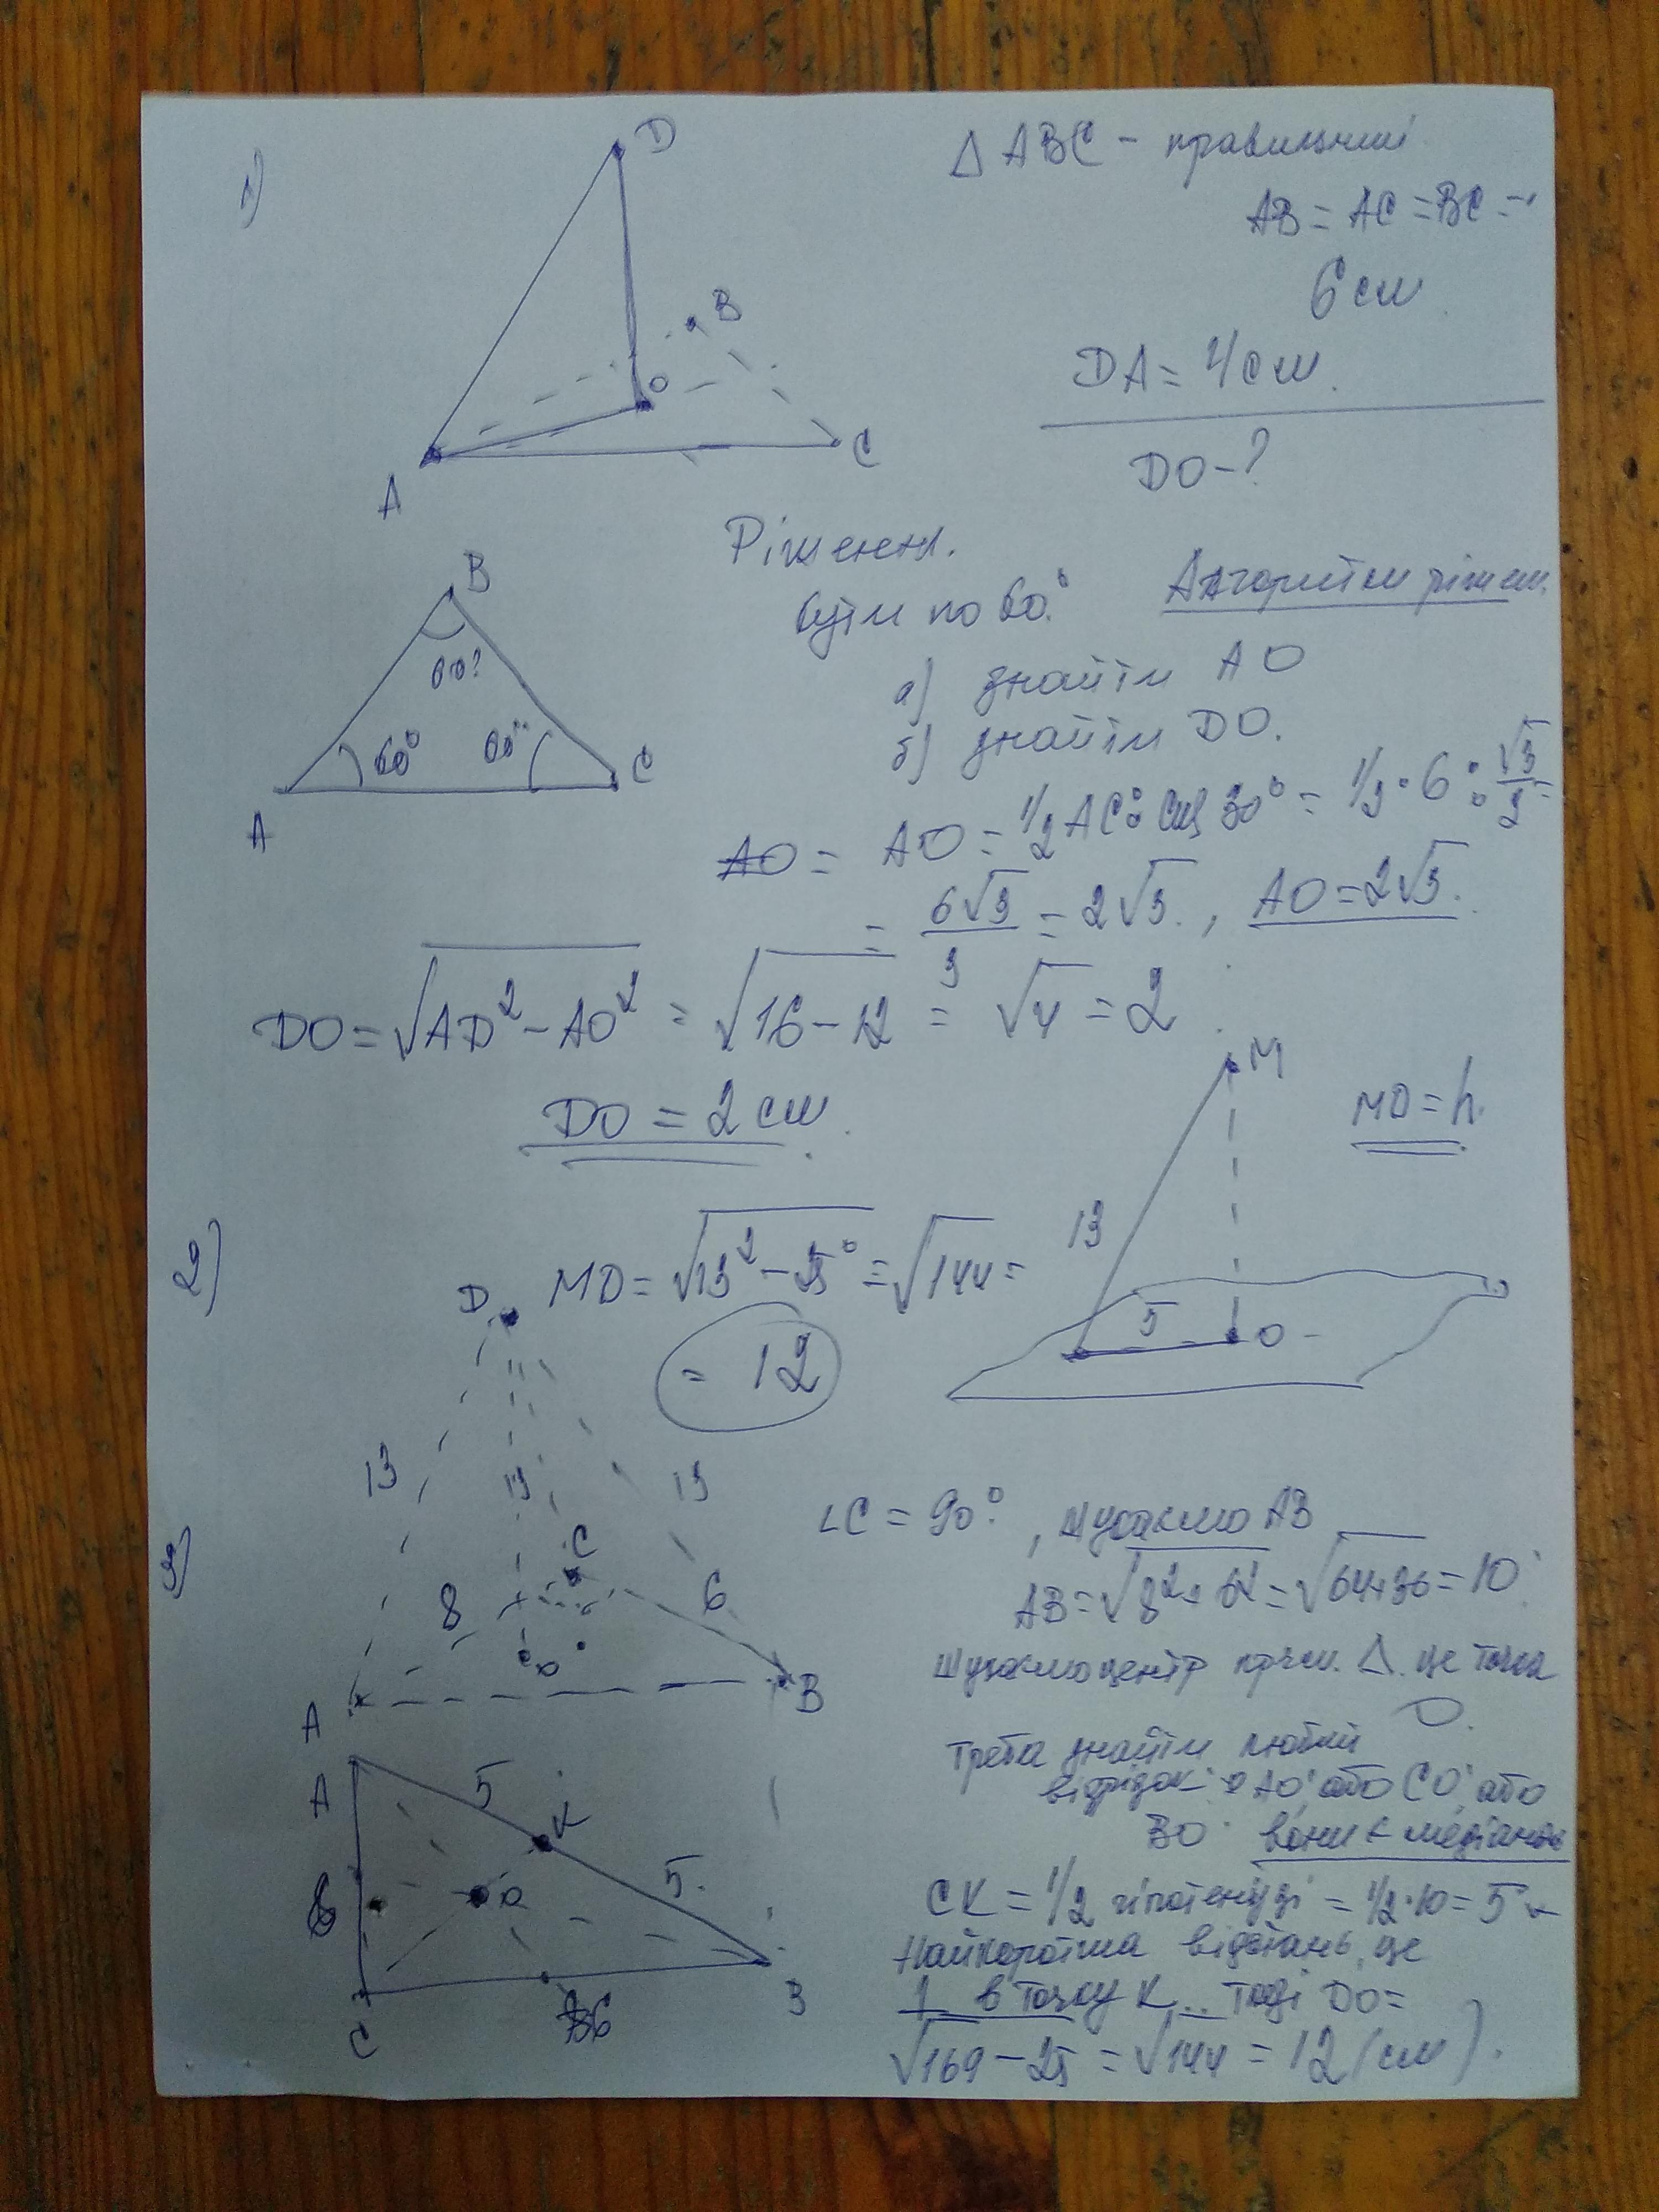 1)
D
B
O
A
C
Δ ABC - правильний
AB = AC = BC =
6 см
DA = 4 см.
DO - ?
Рішення.
B
60°
60°
60°
A
C
кути по 60°.
Алгоритм рішен.
а) знайти AO
б) знайти DO.
AO = AO = 1/2 AC : cos 30° = 1/2 · 6 : √3/2 =
= 6√3/3 = 2√3. , AO = 2√3.
DO = √AD² - AO² = √16 - 12 = √4 = 2
DO = 2 см.
M
MO = h.
13
5
O
2)
MO = √13² - 5² = √144 =
= 12
3)
D
13
13
13
C
8
6
O
A
B
∠C = 90° , шукаємо AB
AB = √8² + 6² = √64+36 = 10
Шукаємо центр прям. Δ. це точка
O.
Треба знайти любий
відрізок: AO, або CO, або
BO. вони є медіаною
A
5
K
8
O
5.
C
6
B
CK = 1/2 гіпотенузі = 1/2 · 10 = 5
Найкоротша відстань, це
⊥ в точку K .. тоді DO =
√169 - 25 = √144 = 12 (см).